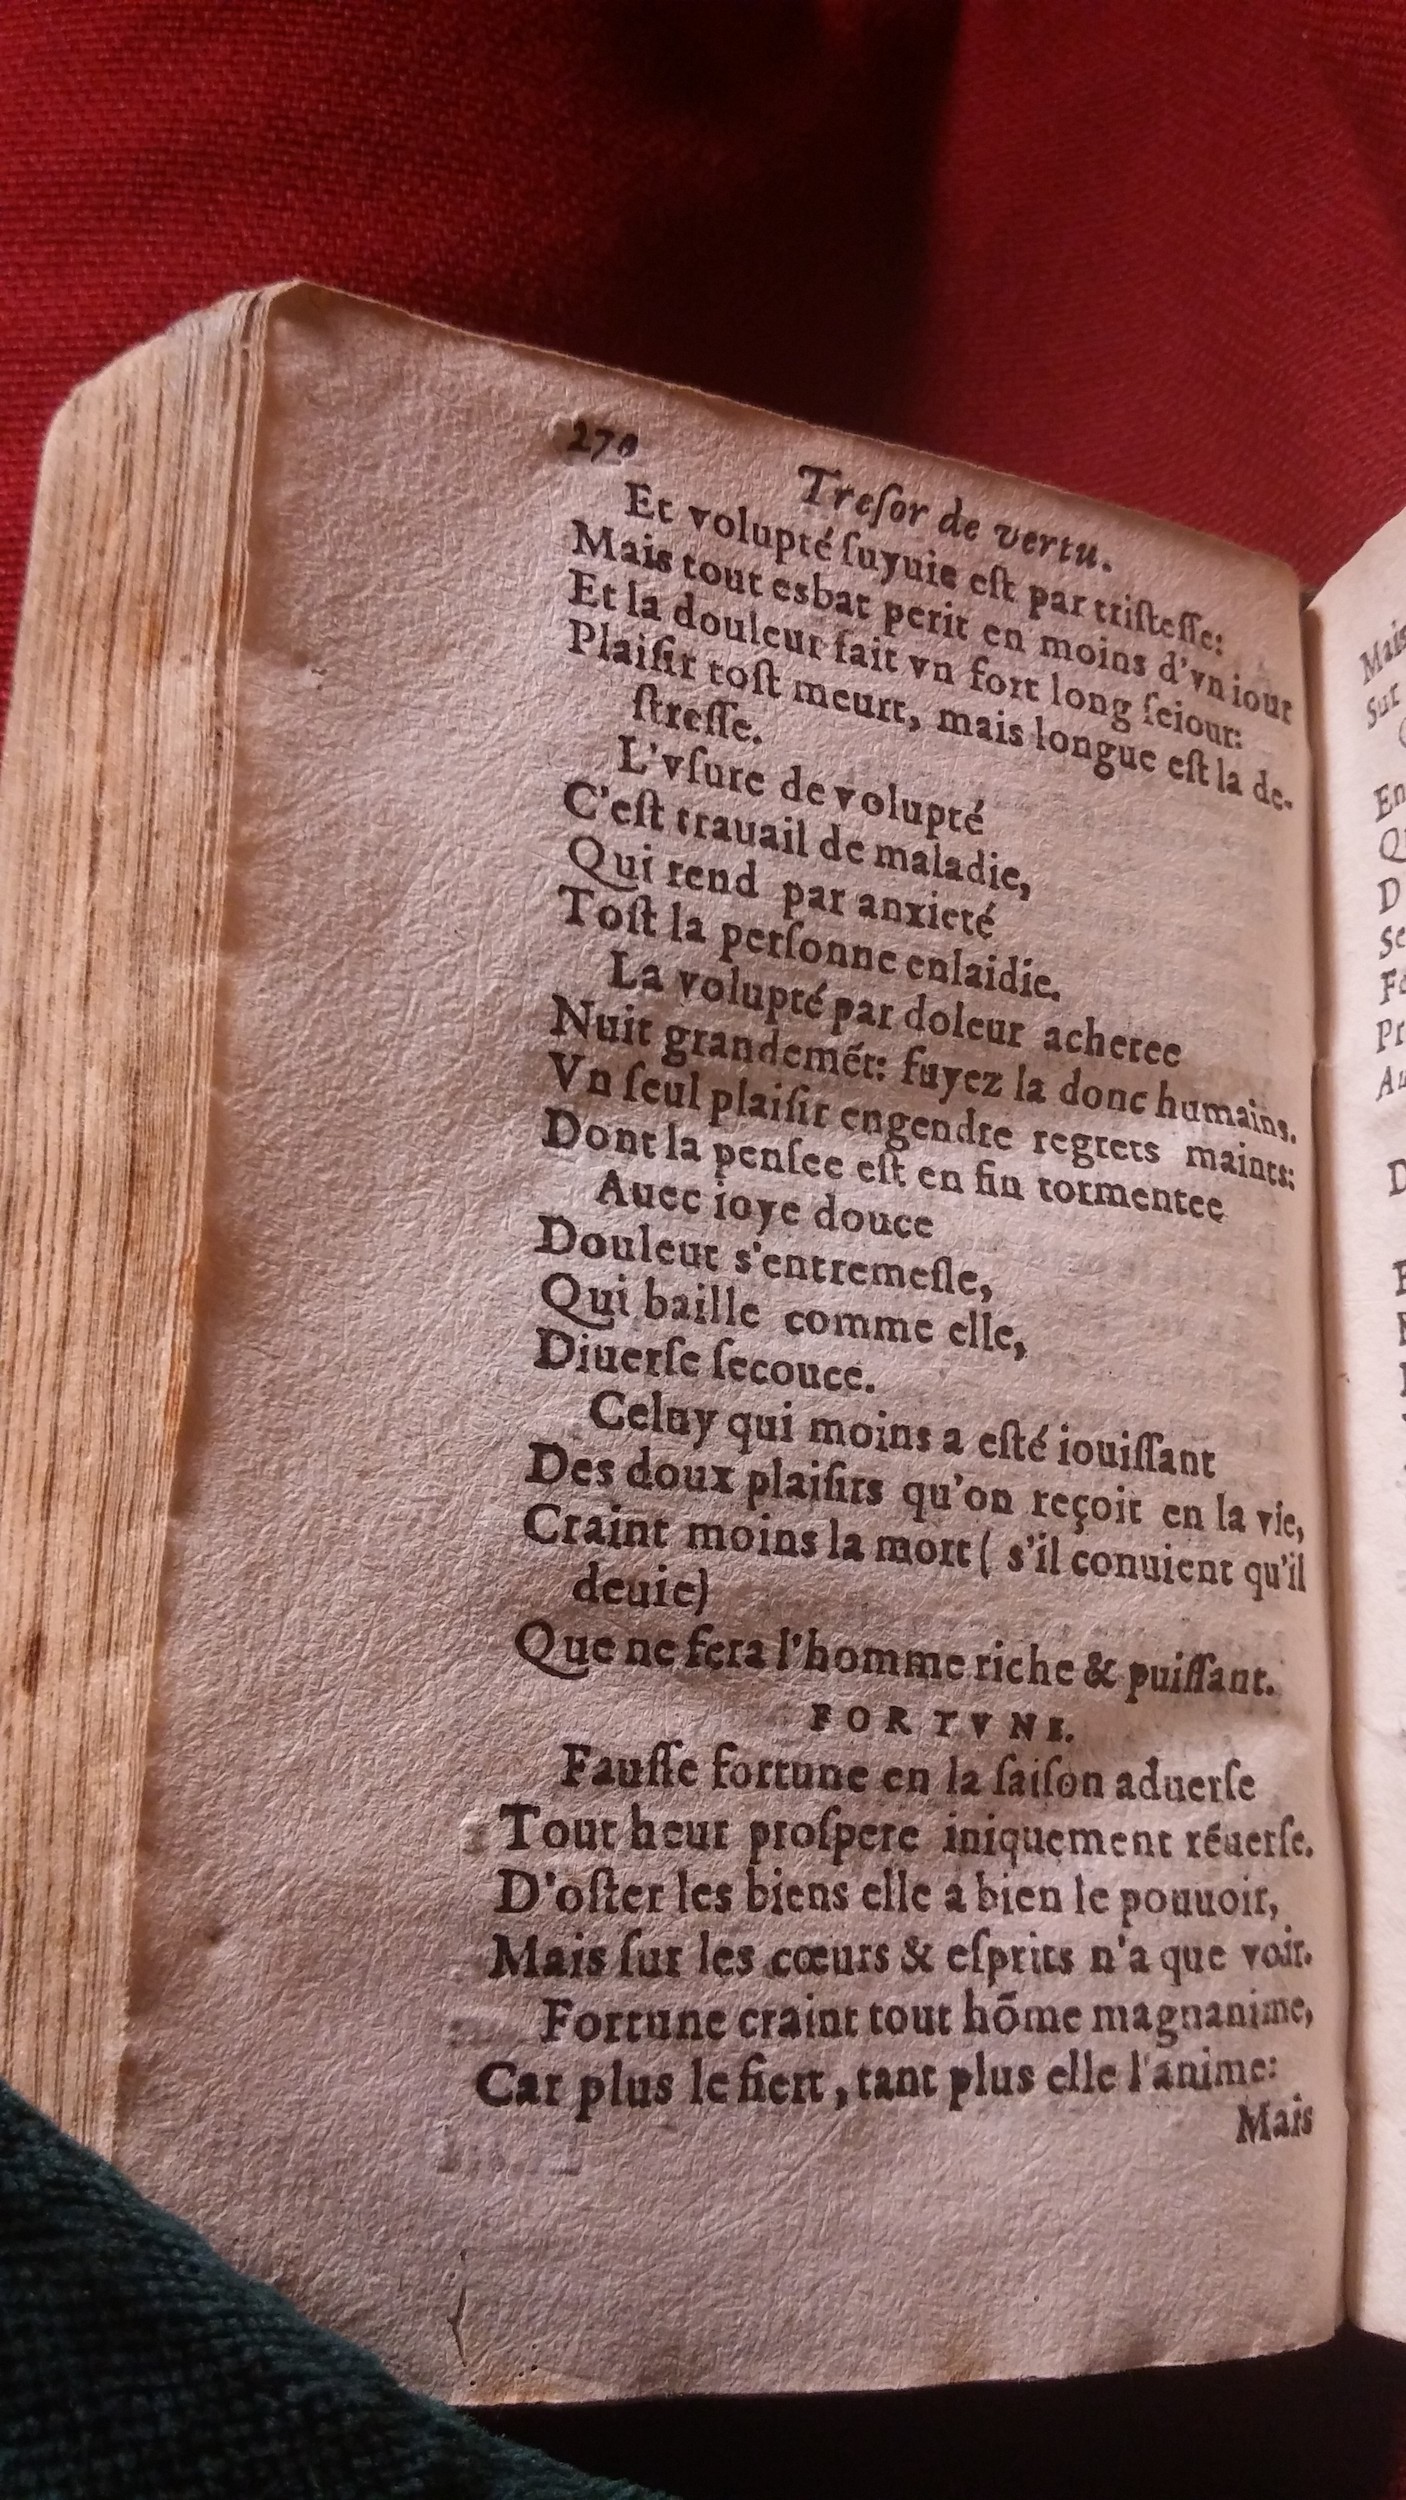 270
Treſor de vertu.
Et volupté ſuyuie eſt par triſteſſe:
Mais tout esbat perit en moins d'vn iour
Et la douleur fait vn fort long ſeiour:
Plaiſir toſt meurt, mais longue eſt la de-
ſtreſſe.
L'vſure de volupté
C'eſt trauail de maladie,
Qui rend par anxieté
Toſt la perſonne enlaidie.
La volupté par doleur achetee
Nuit grandemẽt: fuyez la donc humains.
Vn ſeul plaiſir engendre regrets maints:
Dont la penſee eſt en fin tormentee
Auec ioye douce
Douleur s'entremeſle,
Qui baille comme elle,
Diuerſe ſecouce.
Celuy qui moins a eſté iouiſſant
Des doux plaiſirs qu'on reçoit en la vie,
Craint moins la mort ( s'il conuient qu'il
deuie)
Que ne fera l'homme riche & puiſſant.
FORTVNE.
Fauſſe fortune en la ſaiſon aduerſe
Tout heur proſpere iniquement réuerſe.
D'oſter les biens elle a bien le pouuoir,
Mais ſur les cœurs & eſprits n'a que voir.
Fortune craint tout hõme magnanime,
Car plus le fiert, tant plus elle l'anime:
Mais
Mais
Sur
En
D
Se
Pr
D